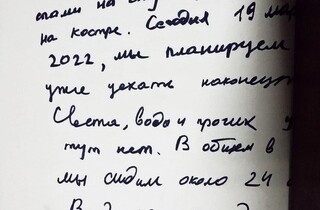 спали на
на костре. Сегодня 19 мар
2022, мы планируем
уже уехать наконец
Света, воды и прочих у
тут нет. В общем в
мы сидим около 24
В